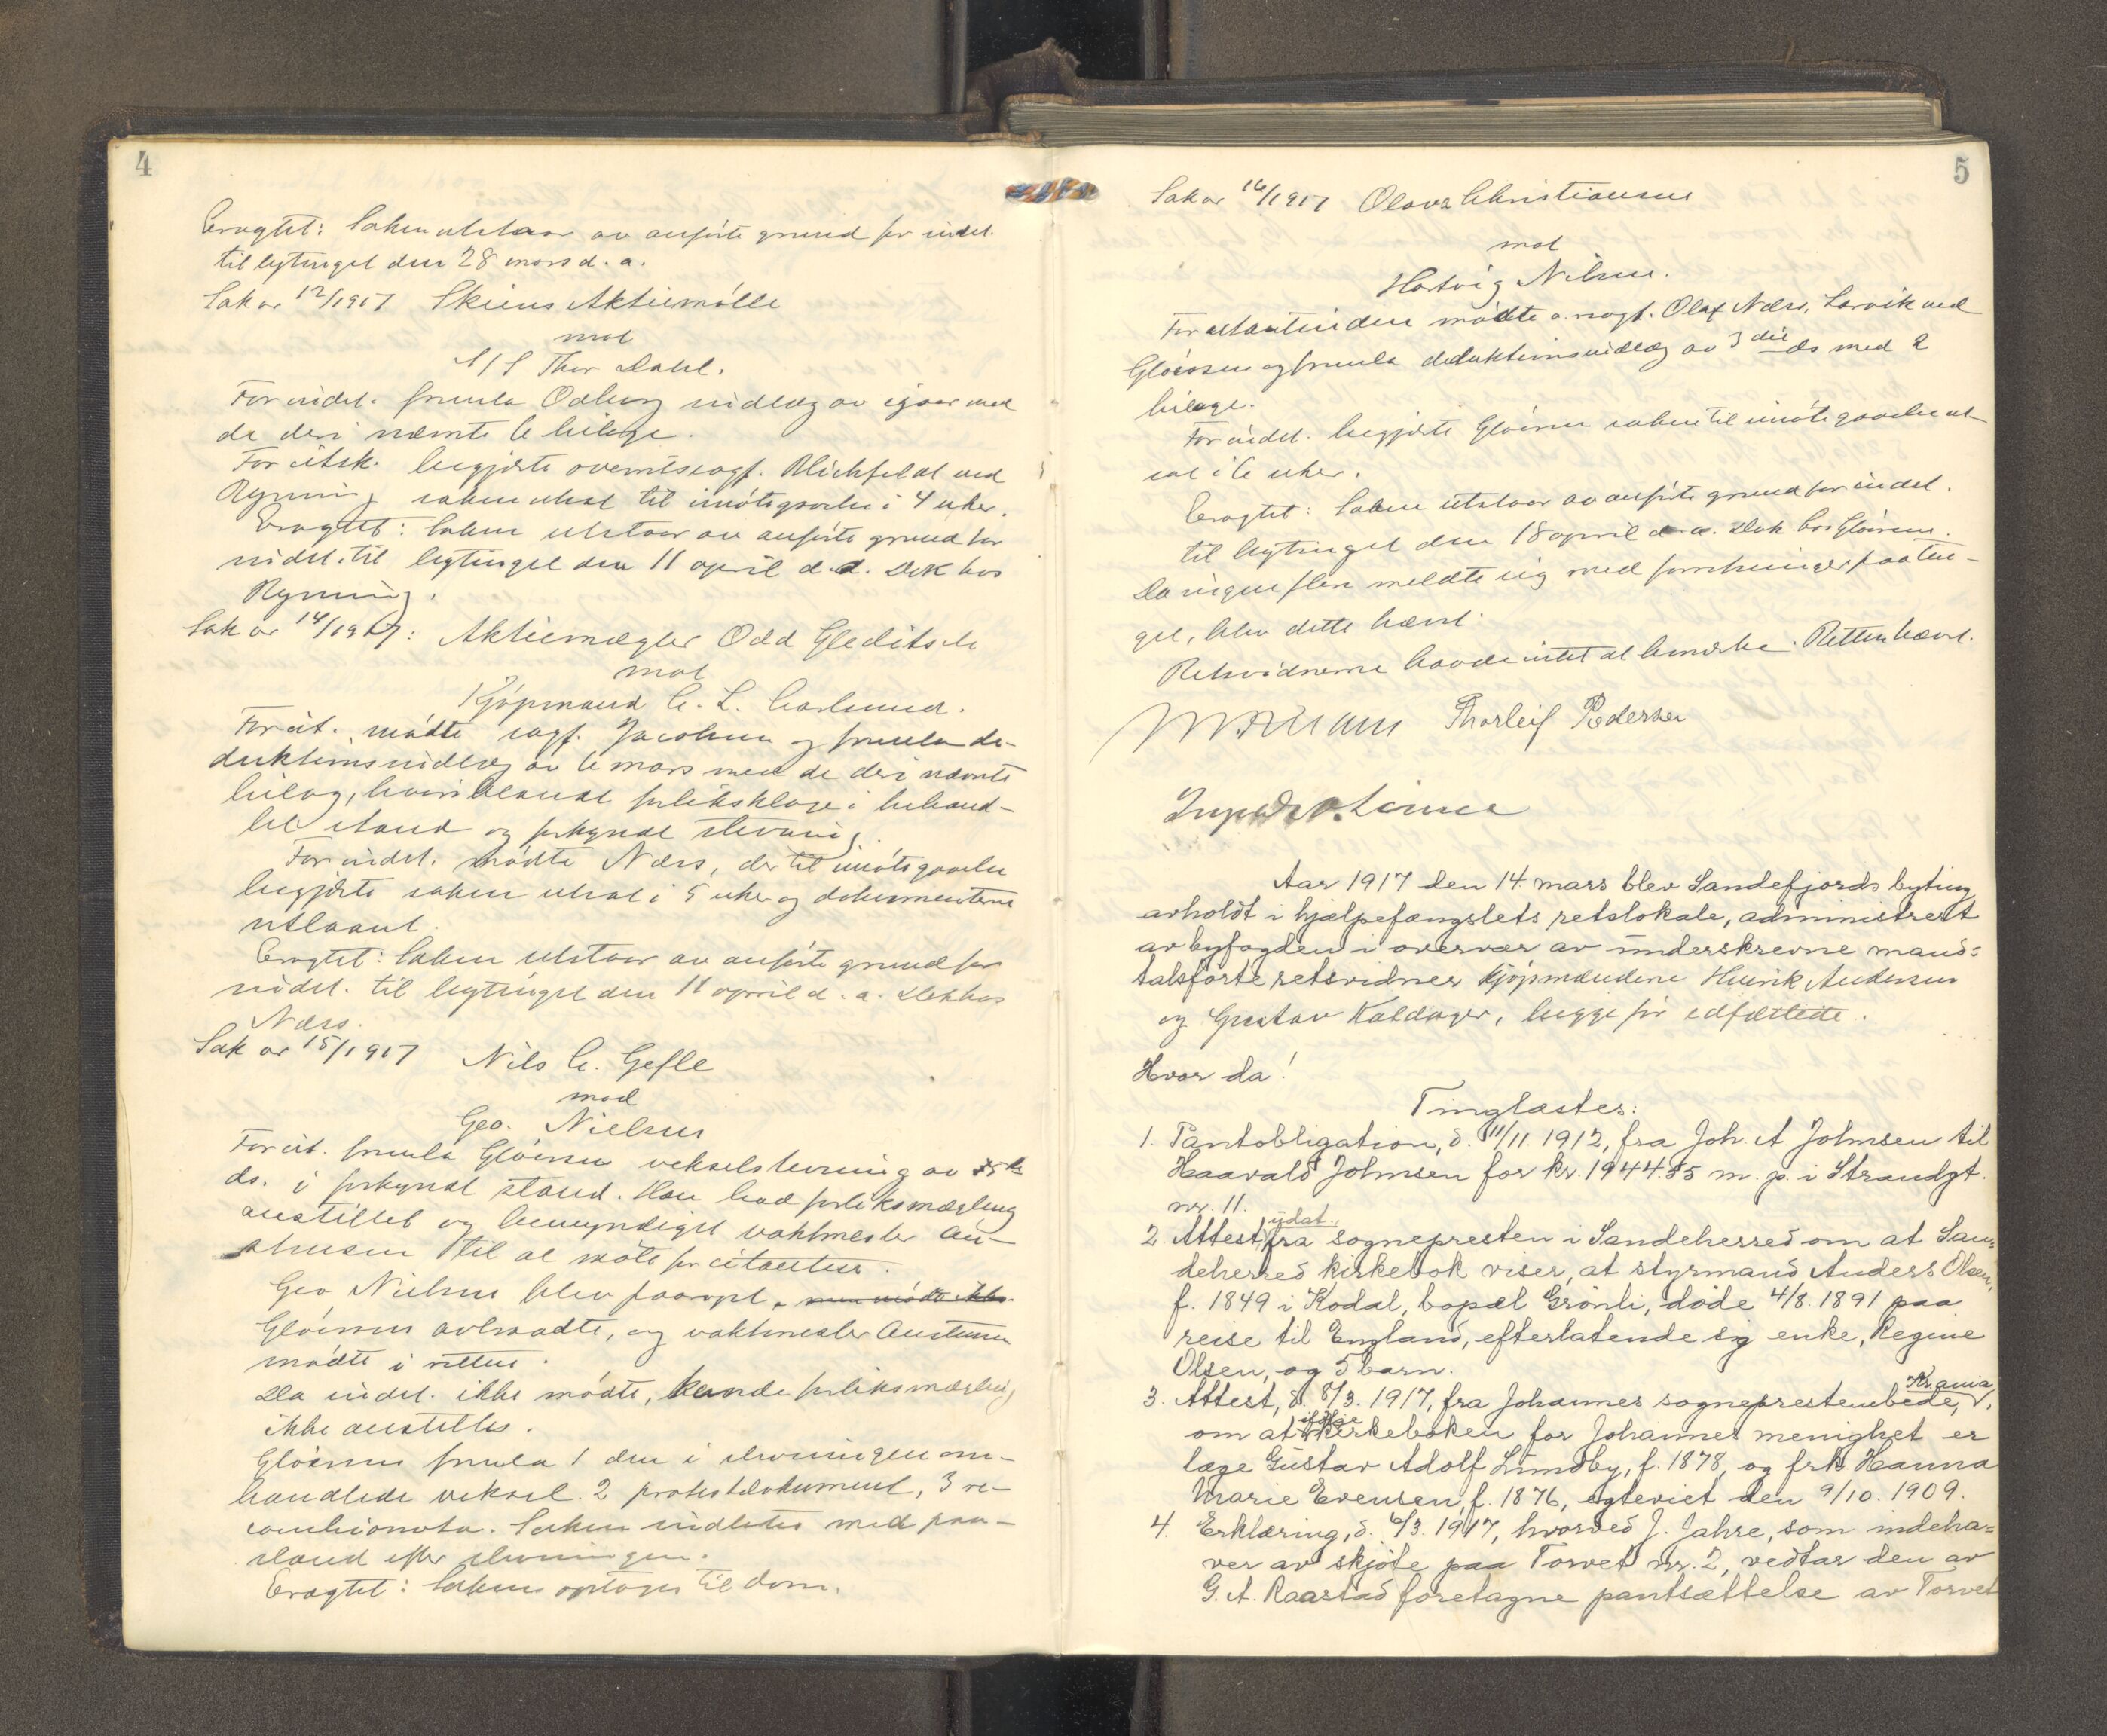 4
Eragtet: Saken utstaar av anførte grund for indst.
til bytinget den 28 mars d. a.
Sak nr 12/1917 Skiens Aktiemølle
mot
A/S Thor Dahl.
For indst. fremla Odberg indlæg av igaar med
de deri nævnte 6 bilage.
For citsk. begjærte overretssagf. Blichfeldt ved
Rynning saken utsat til imøtegaaelse i 4 uker.
Eragtet: Saken utstaar av anførte grund for
indst. til bytinget den 11 april d. a. Dok hos
Rynning.
Sak nr 14/1917: Aktiemægler Odd Gleditsch
mot
Kjøpmand C. L. Carlsund.
For cit. mødte sagf. Jacobsen og fremla de-
duktionsindlæg av 6 mars med de deri nævnte
bilag, hvoriblandt forliksklage i behand-
let stand og forkyndt stevning.
For indst. mødte Næss, der til imøtegaaelse
begjærte saken utsat i 5 uker og dokumenterne
utlaant.
Eragtet: Saken utstaar av anførte grund for
indst. til bytinget den 11 april d. a. Dok hos
Næss.
Sak nr 15/1917 Nils C. Gefle
mod
Geo. Nielsen
For cit. fremla Gløersen vekselstevning av
ds. i forkyndt stand. Han bad forliksmægling
anstillet og bemyndiget vaktmester Au-
stensen til at møte for citanten.
Geo Nielsen blev paaropt, men mødte ikke.
Gløersen avtraadte, og vaktmester Austensen
mødte i retten.
Da indst. ikke mødte, kunde forliksmægling
ikke anstilles.
Gløersen fremla 1 den i stevningen om-
handlede veksel. 2 protestdokument, 3 re-
cambionota. Saken indlates med paa-
stand efter stevningen.
Eragtet: Saken optages til dom.
5
Sak nr 16/1917 Olava Christiansen
mot
Hartvig Nilsen.
For citantinden mødte o. r. sagf. Olaf Næss, Larvik ved
Gløersen og fremla deduktionsindlæg av 3 die ds med 2
bilage.
For indst. begjærte Gløersen saken til imøtegaaelse ut-
sat i 6 uker.
Eragtet: Saken utstaar av anførte grund for indst.
til bytinget den 18 april d. a. Dok hos Gløersen.
Da ingen flere meldte sig med forretninger paa tin-
get, blev dette hævet.
Retsvidnerne havde intet at bemerke. Retten hævet.
Thorleif Pedersen
Aar 1917 den 14. mars blev Sandefjords byting
avholdt i hjælpefængslets retslokale, administrert
av byfogden i overvær av underskrevne mand-
talsførte retsvidner kjøpmændene Henrik Andersen
og Gustav Kaldager, begge før edfæstede.
Hvor da!
Tinglæstes:
1. Pantobligation, d. 11/11. 1912, fra Joh. A Johnsen til
Haavald Johnsen for kr. 1944.55 m. p. i Strandgt.
nr. 11.
2. Attest, udat., fra sognepresten i Sandeherred om at San-
deherred kirkebok viser, at styrmand Anders Olsen,
f. 1849 i Kodal, bopæl Grønli, døde 4/8. 1891 paa
reise til England, efterlatende sig enke, Regine
Olsen, og 5 barn.
3. Attest, d. 8/3. 1917, fra Johannes sogneprestembede, Kr.ania,
om at ifølge kirkeboken for Johannes menighet er
læge Gustav Adolf Lundby, f. 1878, og frk Hanna
Marie Evensen, f. 1876, egteviet den 9/10. 1909.
4. Erklæring, d. 6/3. 1917, hvorved J. Jahre, som indeha-
ver av skjøte paa Torvet nr. 2, vedtar den av
G. A. Raastad foretagne pantsættelse av Torvet